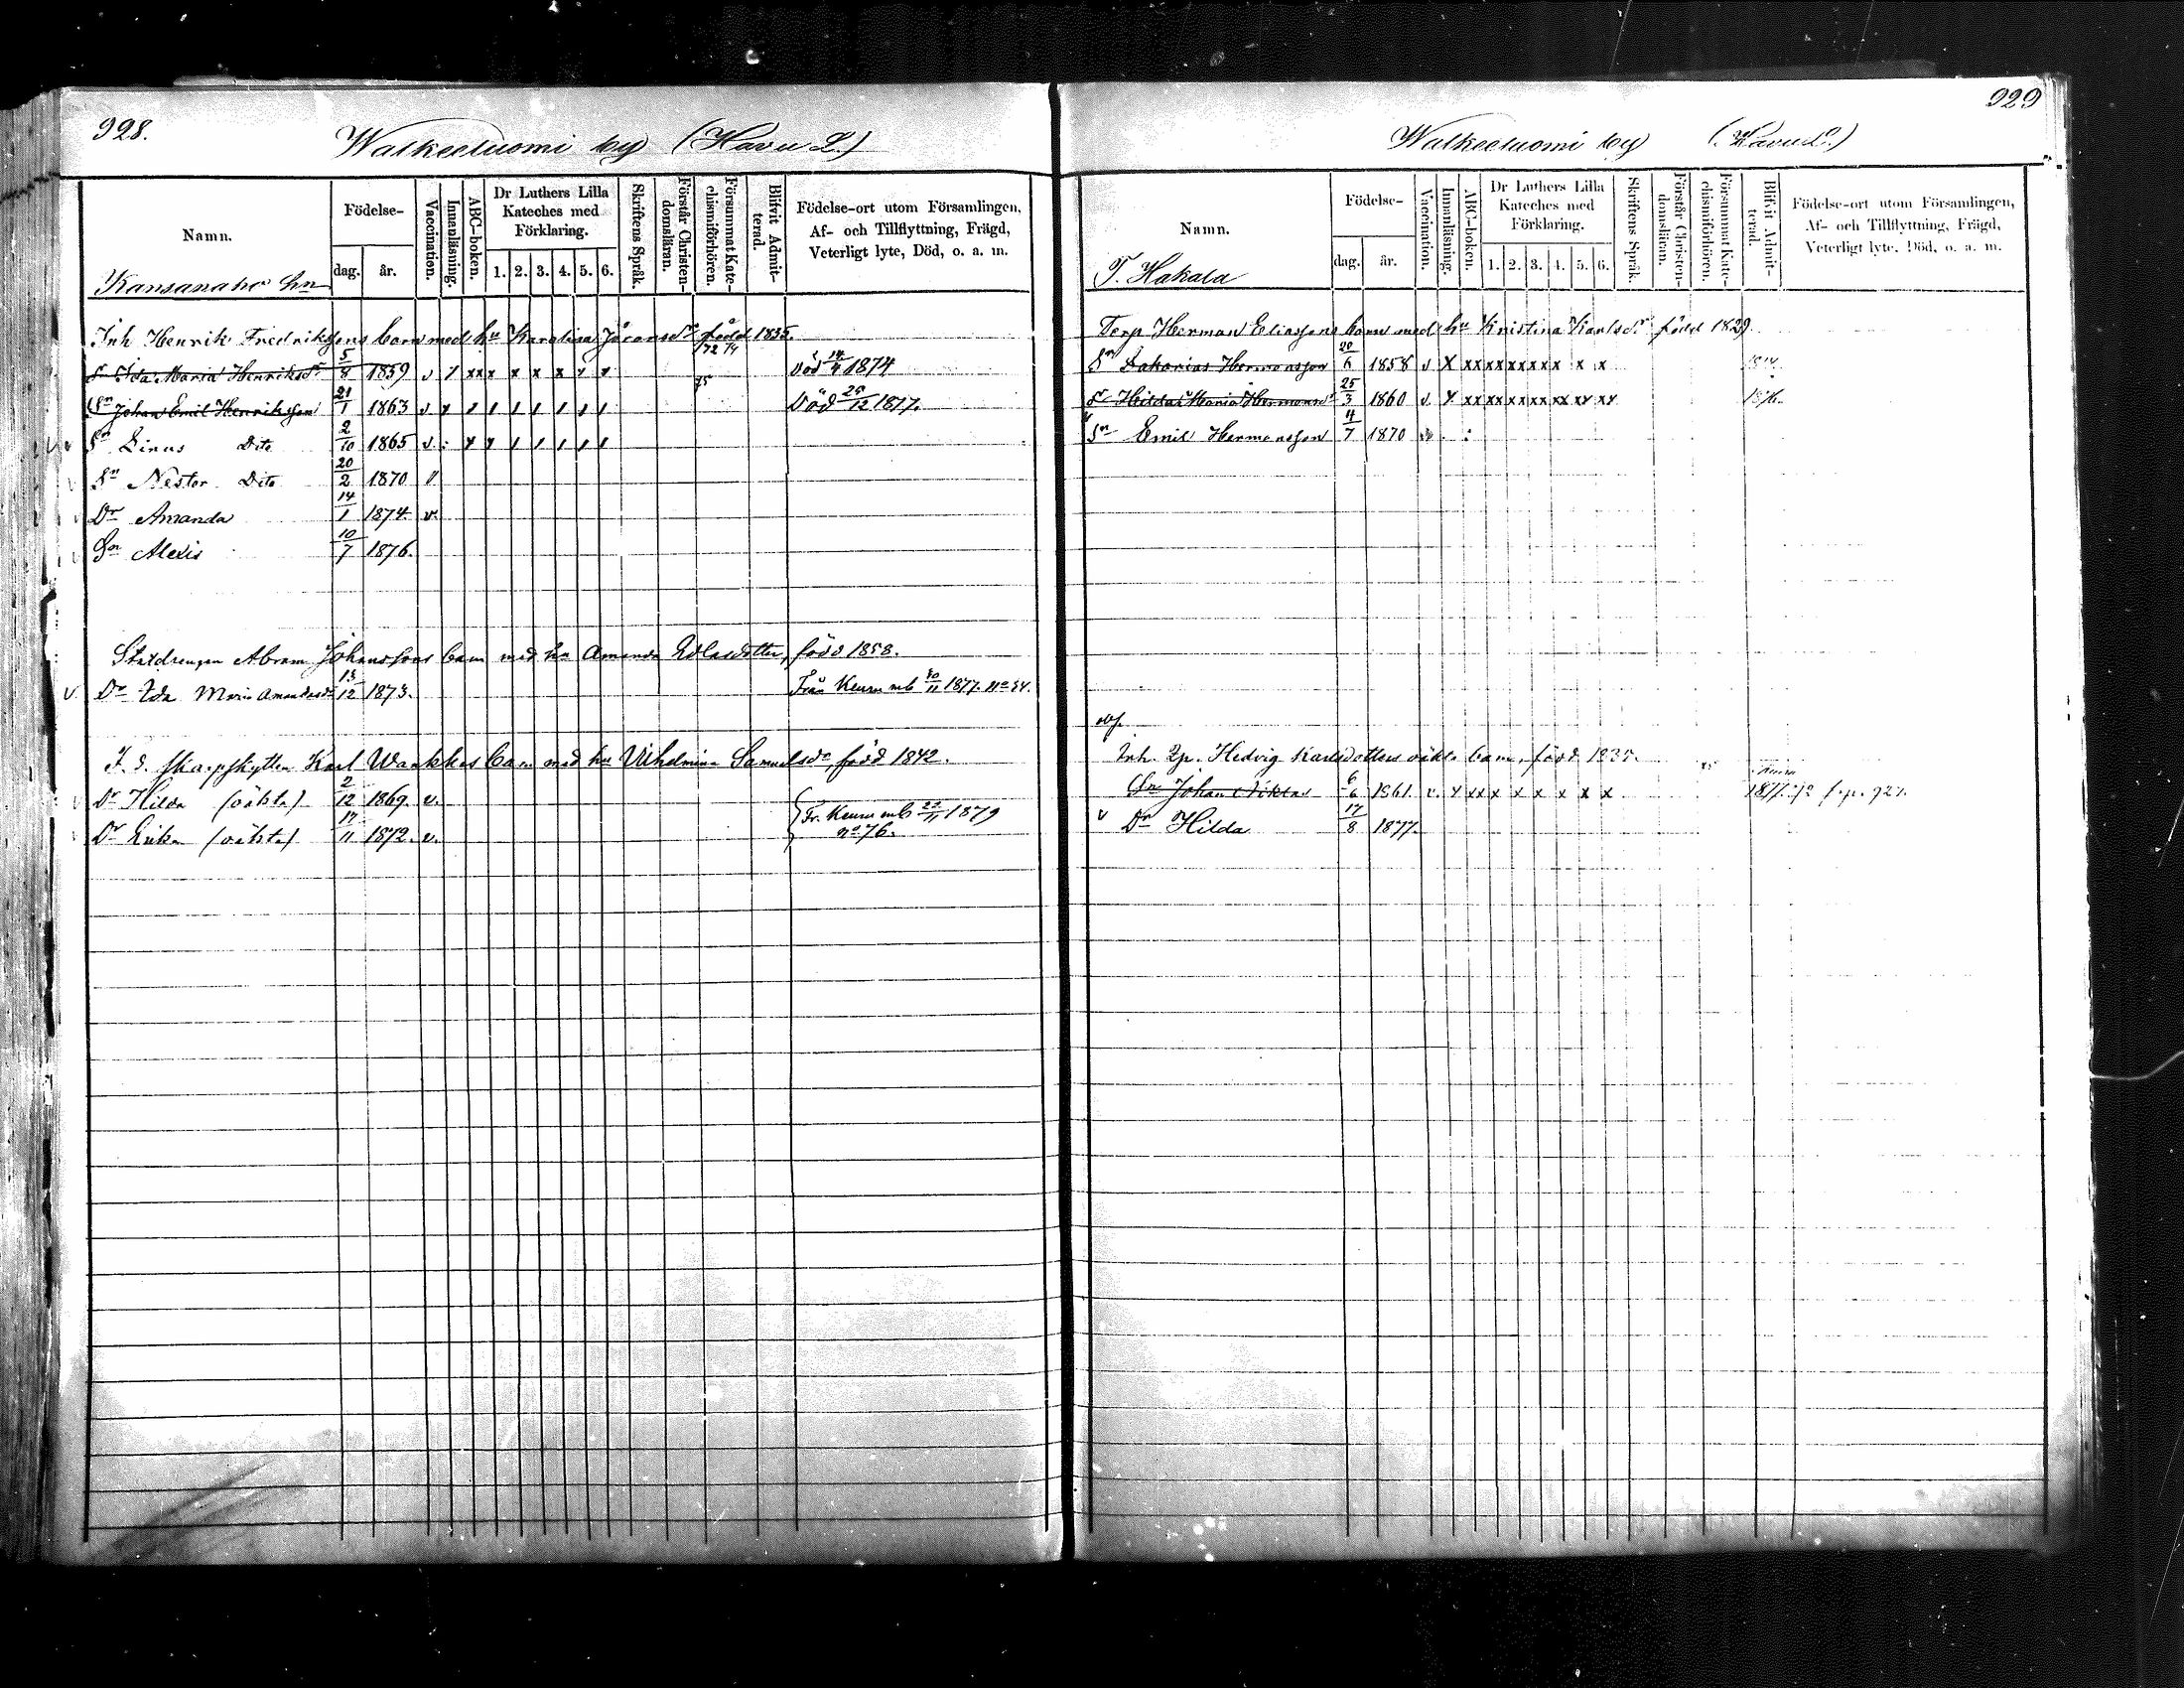 928.
Walkeeluomi by (Havu L.)
Namn.
Födelse-
dag. år.
Vaccination.
Innanläsning.
ABC-boken.
Dr Luthers Lilla Kateches med Förklaring.
1. 2. 3. 4. 5. 6.
Skriftens Språk.
Förstår Christen-domsläran.
Försummat Kate-chismiförhören.
Blifvit Admit-terad.
Födelse-ort utom Församlingen, Af- och Tillflyttning, Frägd, Veterligt lyte, Död, o. a. m.
Kansanaho hn
Inh Henrik Fredrikssons barn med hu Karolina född 1835.
72 74
Dr Ida Maria Henriksdr 5/8 1859 v x xx x x x x x x Död 1874
75
Sn Johan Emil Henriksson 21/1 1863 v x / / / / / / / Död 25/12 1877.
Sn Linus Dito 2/10 1865 v. : x x / / / / /
Sn Nestor Dito 20/2 1870 v
Dr Amanda 14/1 1874 v.
Sn Alexis 10/7 1876.
Statdrengen Abram Johanssons barn med hu Amanda född 1858.
v. Dr Ida Maria Amandasdr 13/12 1873. Från Keuru mb 30/11 1877. No 54.
F. d. skarpskytten Karl Waakkos barn med hu Vilhelmina Samuelsdr född 1842.
Dr Hilda (oäkta) 2/12 1869. v.
Fr. Keuru mb 1879
no 76.
Dr Erika (oäkta) 17/11 1872. v.
929
Walkeeluomi by (Havu L.)
Namn.
Födelse-
dag. år.
Vaccination.
Innanläsning.
ABC-boken.
Dr Luthers Lilla Kateches med Förklaring.
1. 2. 3. 4. 5. 6.
Skriftens Språk.
Förstår Christen-domsläran.
Försummat Kate-chismiförhören.
Blifvit Admit-terad.
Födelse-ort utom Församlingen, Af- och Tillflyttning, Frägd, Veterligt lyte, Död, o. a. m.
T. Hakala
Torp Herman Eliassons barn med hu Kristina Karlsdr född 1829
Sn Sakarias Hermansson 20/6 1858 v x xx xx xx x x x x
Dr Hilda Maria Hermansdr 25/3 1860 v. x xx xx xx xx xx xx 1876.
Sn Emil Hermansson 4/7 1870 v :
Inh. Qp. Hedvig Karlsdotters oäkta barn, född 1835.
Sn Johan Niklas 6/6 1861. v. x xx x x x x x x 1877. p. 927.
v Dr Hilda 17/8 1877.